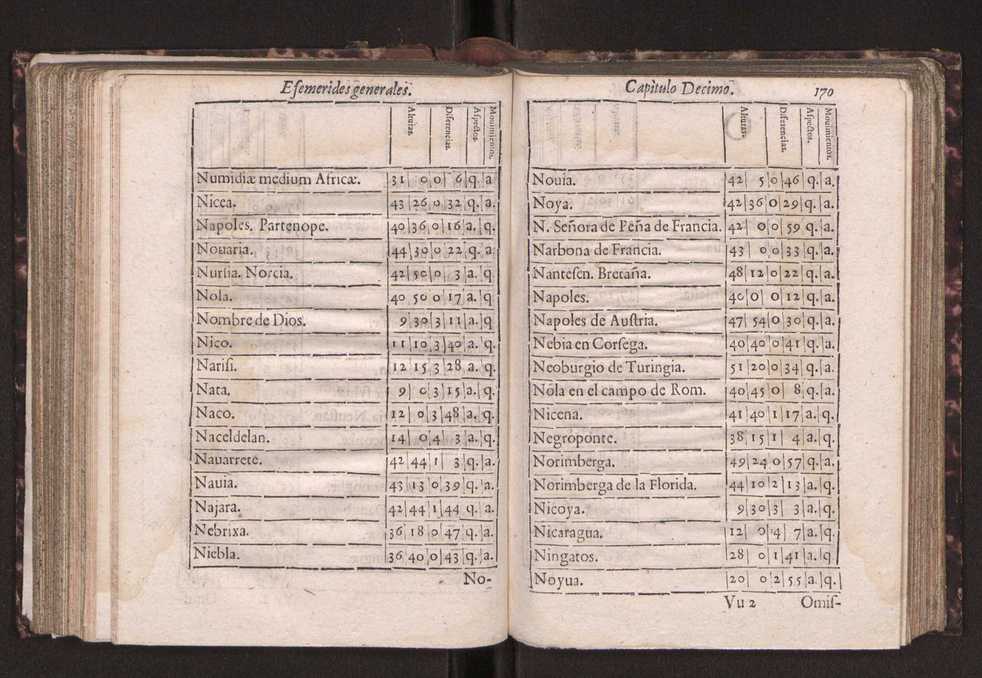 Efemerides generales.
Alturas. Diferencias. Aspectos. Mouimientos.
Numidiæ medium Africæ. 31 0 0 6 q. a
Nicea. 43 26 0 32 q. a.
Napoles. Partenope. 40 36 0 16 a. q.
Nouaria. 44 30 0 22 q. a
Nursia. Norcia. 42 50 0 3 a. q
Nola. 40 50 0 17 a. q
Nombre de Dios. 9 30 3 11 a. q
Nico. 11 10 3 40 a. q.
Narisi. 12 15 3 28 a. q.
Nata. 9 0 3 15 a. q.
Naco. 12 0 3 48 a. q.
Naceldelan. 14 0 4 3 a. q.
Nauarrete. 42 44 1 3 q. a.
Nauia. 43 13 0 39 q. a.
Najara. 42 44 1 44 q. a.
Nebrixa. 36 18 0 47 q. a.
Niebla. 36 40 0 43 q. a.
No-
Capitulo Decimo. 170
Alturas. Diferencias. Aspectos. Mouimientos.
Nouia. 42 5 0 46 q. a.
Noya. 42 36 0 29 q. a.
N. Señora de Peña de Francia. 42 0 0 59 q. a.
Narbona de Francia. 43 0 0 33 q. a.
Nantesen. Bretaña. 48 12 0 22 q. a.
Napoles. 40 0 0 12 q. a.
Napoles de Austria. 47 54 0 30 q. a.
Nebia en Corsega. 40 40 0 41 q. a.
Neoburgio de Turingia. 51 20 0 34 q. a.
Nola en el campo de Rom. 40 45 0 8 q. a.
Nicena. 41 40 1 17 a. q.
Negroponte. 38 15 1 4 a. q.
Norimberga. 49 24 0 57 q. a.
Norimberga de la Florida. 44 10 2 13 a. q.
Nicoya. 9 30 3 3 a. q.
Nicaragua. 12 0 4 7 a. q.
Ningatos. 28 0 1 41 a. q
Noyua. 20 0 2 55 a. q.
Vu 2 Omis-